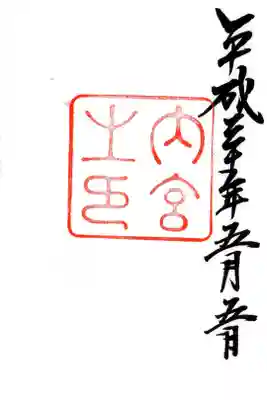 平成二十五年五月五日
内宮
之印